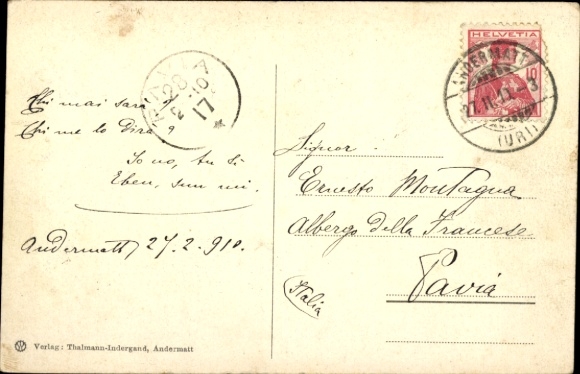 Chi mai sarà?
Chi me lo dirà?
Io no, tu sì
Eben, sun mi.
Andermatt, 27-2-910.
Signor
Ernesto Montagna
Albergo della Francese
Pavia
Italia
HELVETIA
10
ANDERMATT
27.II.10. 3
(URI)
PAVIA
28
2 10
17
W Verlag: Thalmann-Indergand, Andermatt